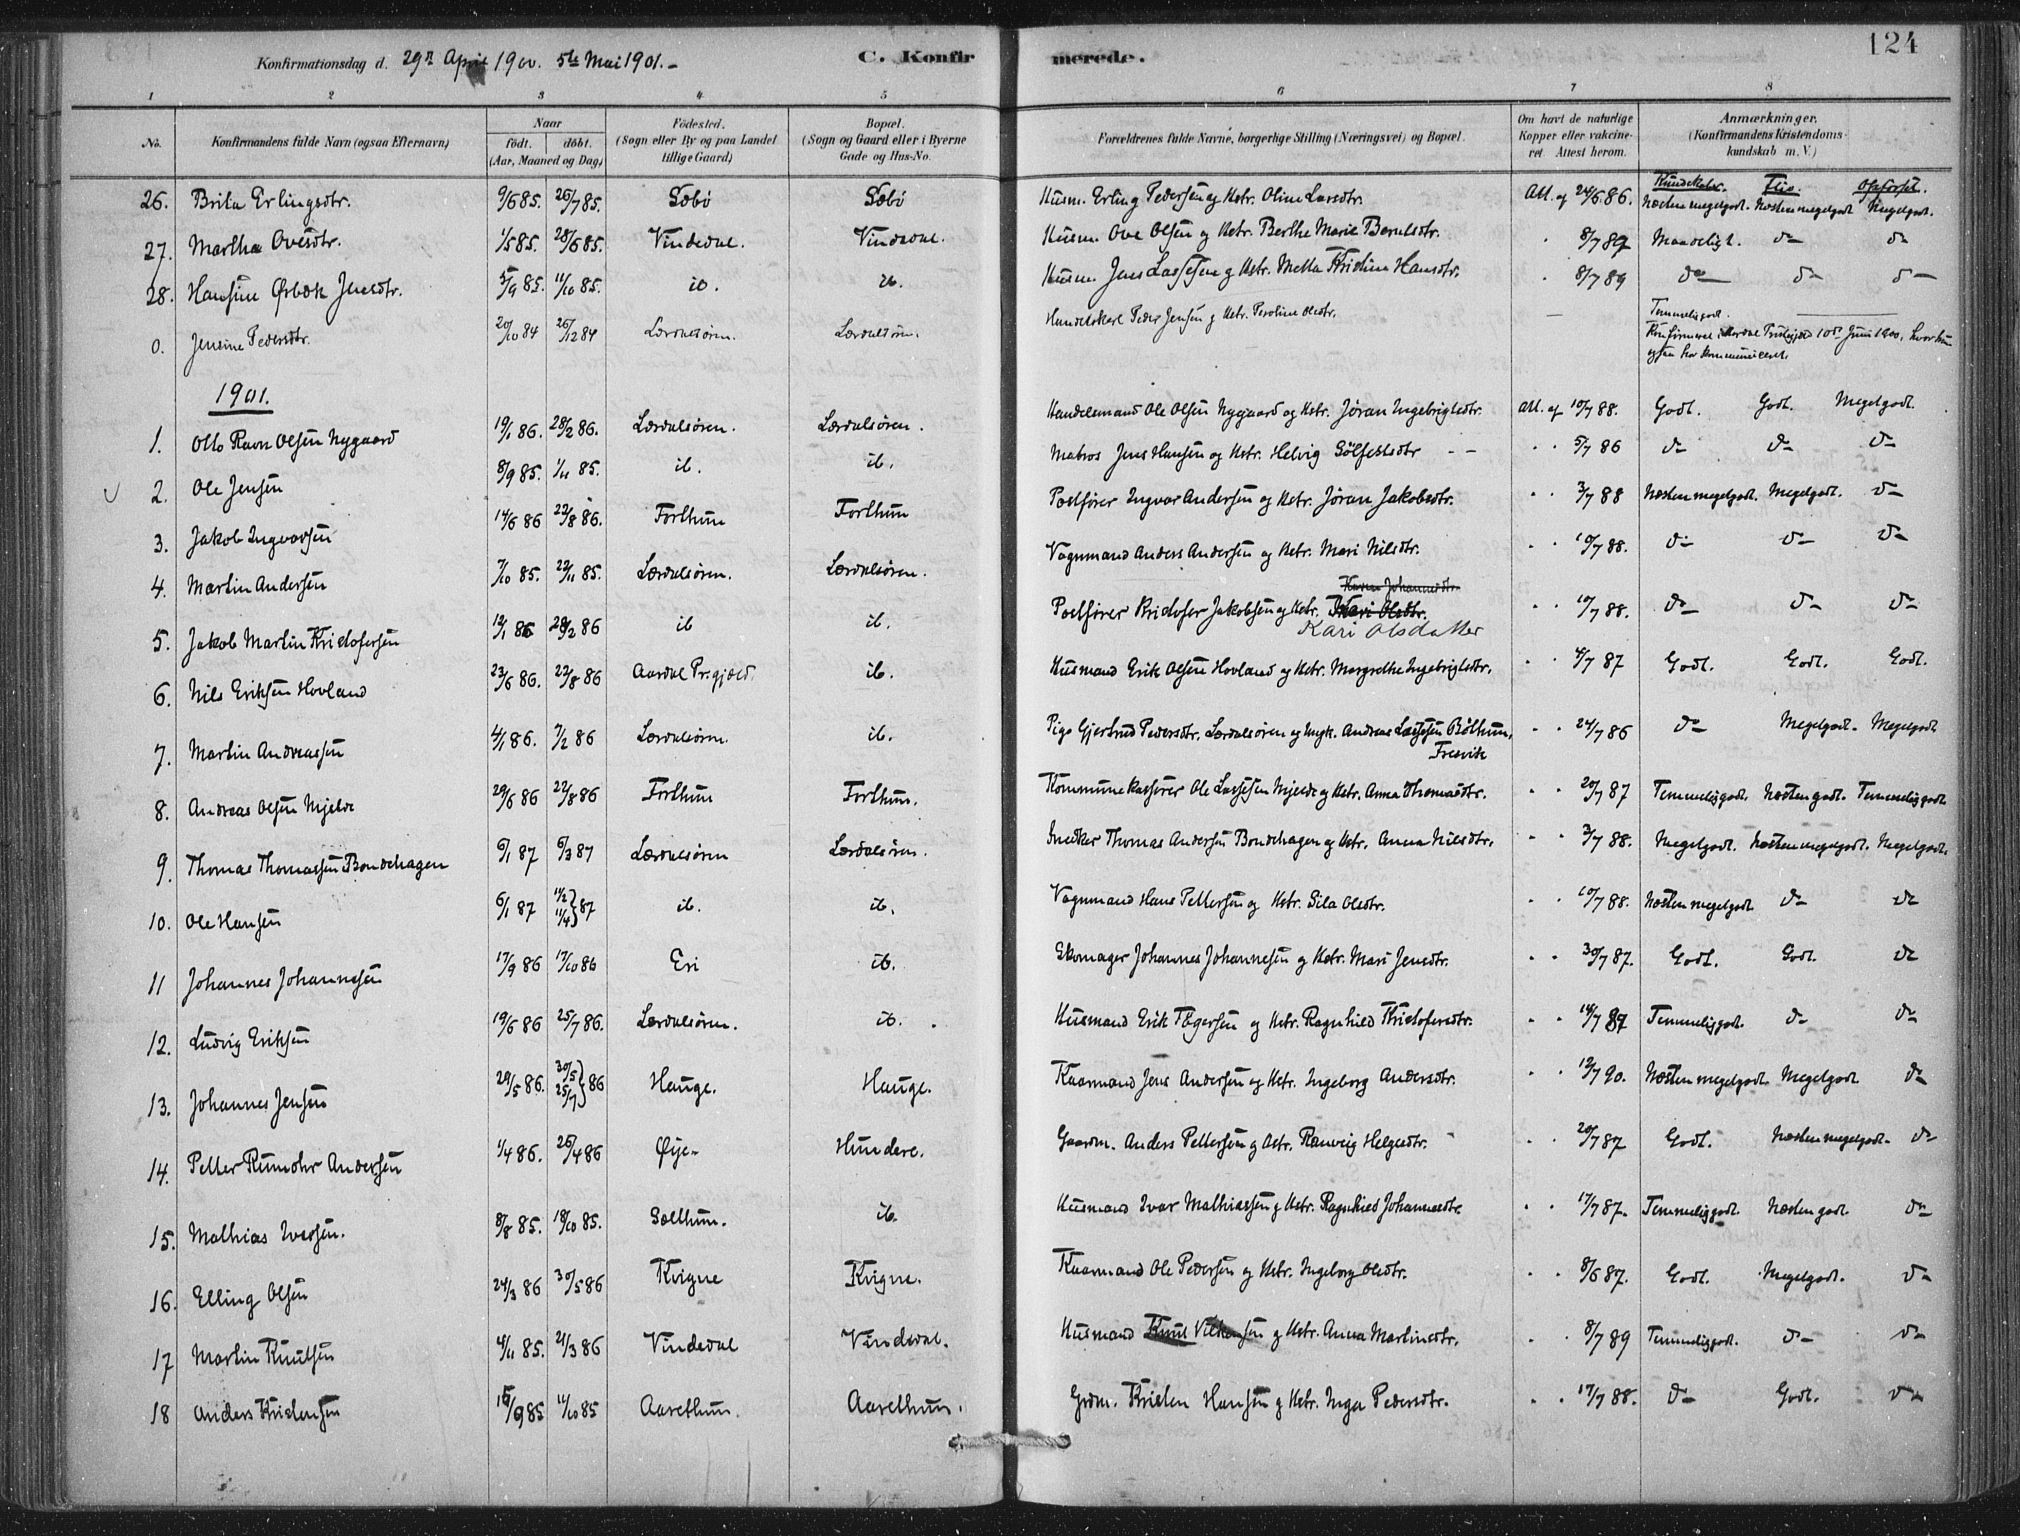 Konfirmationsdag d. 29de April 1900. 5te Mai 1901.-
C. Konfirmerede.
124
1 2 3 4 5 6 7 8
No. Konfirmandens fulde Navn (ogsaa Efternavn) Naar født. døbt. (Aar, Maaned og Dag) Fødested. (Sogn eller By og paa Landet tillige Gaard) Bopæl. (Sogn og Gaard eller i Byerne Gade og Hus-No. Forældrenes fulde Navne, borgerlige Stilling (Næringsvei) og Bopæl. Om havt de naturlige Kopper eller vakcineret. Attest herom. Anmærkninger. (Konfirmandens Kristendomskundskab m. V.)
Kundskab. Flid. Opførsel.
26. Brita Erlingsdtr. 9/6 85. 26/7 85. Sæbö Sæbö Husm. Erling Pedersen og Hstr. Oline Larsdtr. Att. af 24/6 86. Næsten megetgodt. Næsten megetgodt Megetgodt.
27. Martha Ovesdtr. 1/5 85. 28/6 85. Vindedal. Vindedal. Husm. Ove Olsen og Hstr. Berthe Marie Berntsdtr. " 8/7 87 Maadeligt. do do
28. Hansine Ørbæk Jensdtr. 5/9 85. 11/10 85. ib. ib. Husm. Jens Lassesen og Hstr. Metta Kristine Hansdtr. " 8/7 89 do do do
0. Jensine Pedersdtr. 20/10 84 26/12 84 Lærdalsören. Lærdalsören. Handelskarl Peder Jensen og Hstr. Peroline Olsdtr. — Temmeliggodt.
Konfirmeret i Aardal Prestegjeld 10de Juni 1900, hvor hun ogsaa har kommuniceret.
1901.
1. Otto Ravn Olsen Nygaard 19/1 86. 28/2 86. Lærdalsören. Lærdalsören. Handelsmand Ole Olsen Nygaard og Hstr. Jöran Ingebrigtsdtr. Att. af 10/7 88. Godt. Godt. Megetgodt.
2. Ole Jensen 8/9 85. 1/11 85. ib. ib. Matros Jens Hansen og Hstr. Helvig Sölfestsdtr - - " " 5/7 86 do do do
3. Jakob Ingvarsen 14/6 86 22/8 86. Forthun Forthun Postförer Ingvar Andersen og Hstr. Jöran Jakobsdtr. " " 3/7 88 Næsten megetgodt. Megetgodt. do
4. Martin Andersen 7/10 85. 22/11 85. Lærdalsören. Lærdalsören. Vognmand Anders Andersen og Hstr. Mari Nilsdtr. " " 10/7 88. do do do
5. Jakob Martin Kristofersen 12/1 86 28/2 86 ib ib. Postförer Kristofer Jakobsen og Hstr. Kari Olsdtr. Karen Johannesdtr. Kari Olsdatter " " 10/7 88. do do do
6. Nils Eriksen Hovland 23/6 86. 22/8 86 Aardal Pr.gjeld. ib. Husmand Erik Olsen Hovland og Hstr. Margrethe Ingebrigtsdtr. " " 4/7 87 Godt. Godt. Godt.
7. Martin Andreassen 4/1 86. 7/2 86 Lærdalsören. ib. Pige Gjertrud Pedersdtr. Lærdalsören og Ungk. Andreas Lassesen Böthun, Fresvik " " 24/7 86 do Megetgodt. Megetgodt
8. Andreas Olsen Mjelde 29/6 86 22/8 86 Forthun Forthun. Kommunekasserer Ole Lassesen Mjelde og Hstr. Anna Thomasdtr. " " 20/7 87 Temmeliggodt. Næsten godt. Temmeliggodt.
9. Thomas Thomassen Bondehagen 5/1 87 6/3 87 Lærdalsören Lærdalsören. Snedker Thomas Andersen Bondehagen og Hstr. Anna Nilsdtr. " " 3/7 88. Megetgodt. Næsten megetgodt. Megetgodt.
10. Ole Hansen 6/1 87 11/2 11/4 } 87 ib. ib. Vognmand Hans Pettersen og Hstr. Sila Olsdtr. " " 10/7 88. Næsten megetgodt. do do
11 Johannes Johannesen 17/9 86 17/10 86 Eri ib. Skomager Johannes Johannesen og Hstr. Mari Jensdtr. " " 30/7 87. Godt. Godt. do
12. Ludvig Eriksen 19/6 86 25/7 86. Lærdalsören. ib. Husmand Erik Tögersen og Hstr. Ragnhild Kristofersdtr. " " 14/7 87 Temmeliggodt. do do
13. Johannes Jensen 29/5 86. 30/5 25/7 } 86 Hauge. Hauge. Kaarmand Jens Andersen og Hstr. Ingeborg Andersdtr. " " 12/7 90. Næsten megetgodt Megetgodt do
14. Petter Rumohr Andersen 1/4 86. 26/4 86 Øije Hundere. Gaardm. Anders Pettersen og Hstr. Ranveig Helgesdtr. " 20/7 87 Godt. Næsten megetgodt. do
15. Mathias Iversen. 8/8 85. 18/10 85. Sælthun. ib. Husmand Ivar Mathiassen og Hstr. Ragnhild Johannesdtr " " 17/7 87. Temmeliggodt. Næsten godt. do
16. Elling Olsen 24/3 86 30/5 86 Kvigne Kvigne. Kaarmand Ole Pedersen og Hstr. Ingeborg Olsdtr. " " 8/6 87. Godt. Megetgodt. do
17 Martin Knutsen 4/11 85. 21/3 86 Vindedal Vindedal. Husmand Knut Villumsen og Hstr. Anna Martinsdtr. " " 8/7 89 Temmeliggodt. do do
18 Anders Kristensen 15/9 85 11/10 85 Aarethun. Aarethun. Grdm. Kristen Hansen og Hstr. Inger Pedersdtr. " " 17/7 88. do Godt. do